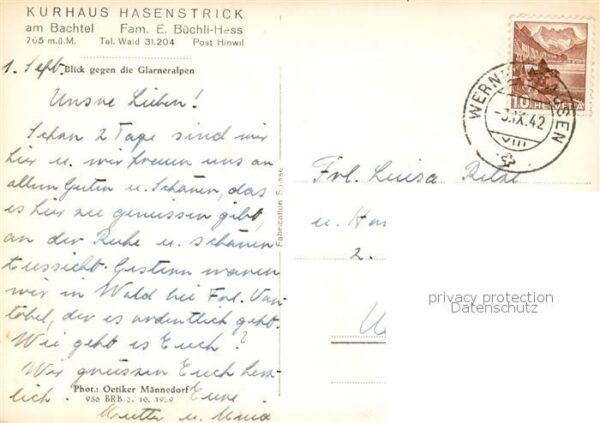 KURHAUS HASENSTRICK
am Bachtel Fam. E. Büchli-Hess
765 m.ü.M. Tel. Wald 31.204 Post Hinwil
1. Sept. Blick gegen die Glarneralpen
Unsre Lieben!
Schon 2 Tage sind wir
hier u. wir freuen uns an
allem Guten u. Schönen, das
es hier zu geniessen gibt,
an der Ruhe u. schönen
Aussicht. Gestern waren
wir in Wald bei Frl. Van
tobel, der es ordentlich geht.
Wie geht es Euch?
Wir grüssen Euch herz
lich. Eure
Phot.: Oetiker Männedorf
936 BRB 3. 10. 1939
Mutter u.
Fabrication Suisse
10 HELVETIA
WERN
SEN
-3.IX.42
VIII
Frl. Luisa
u.
2.
privacy protection
Datenschutz